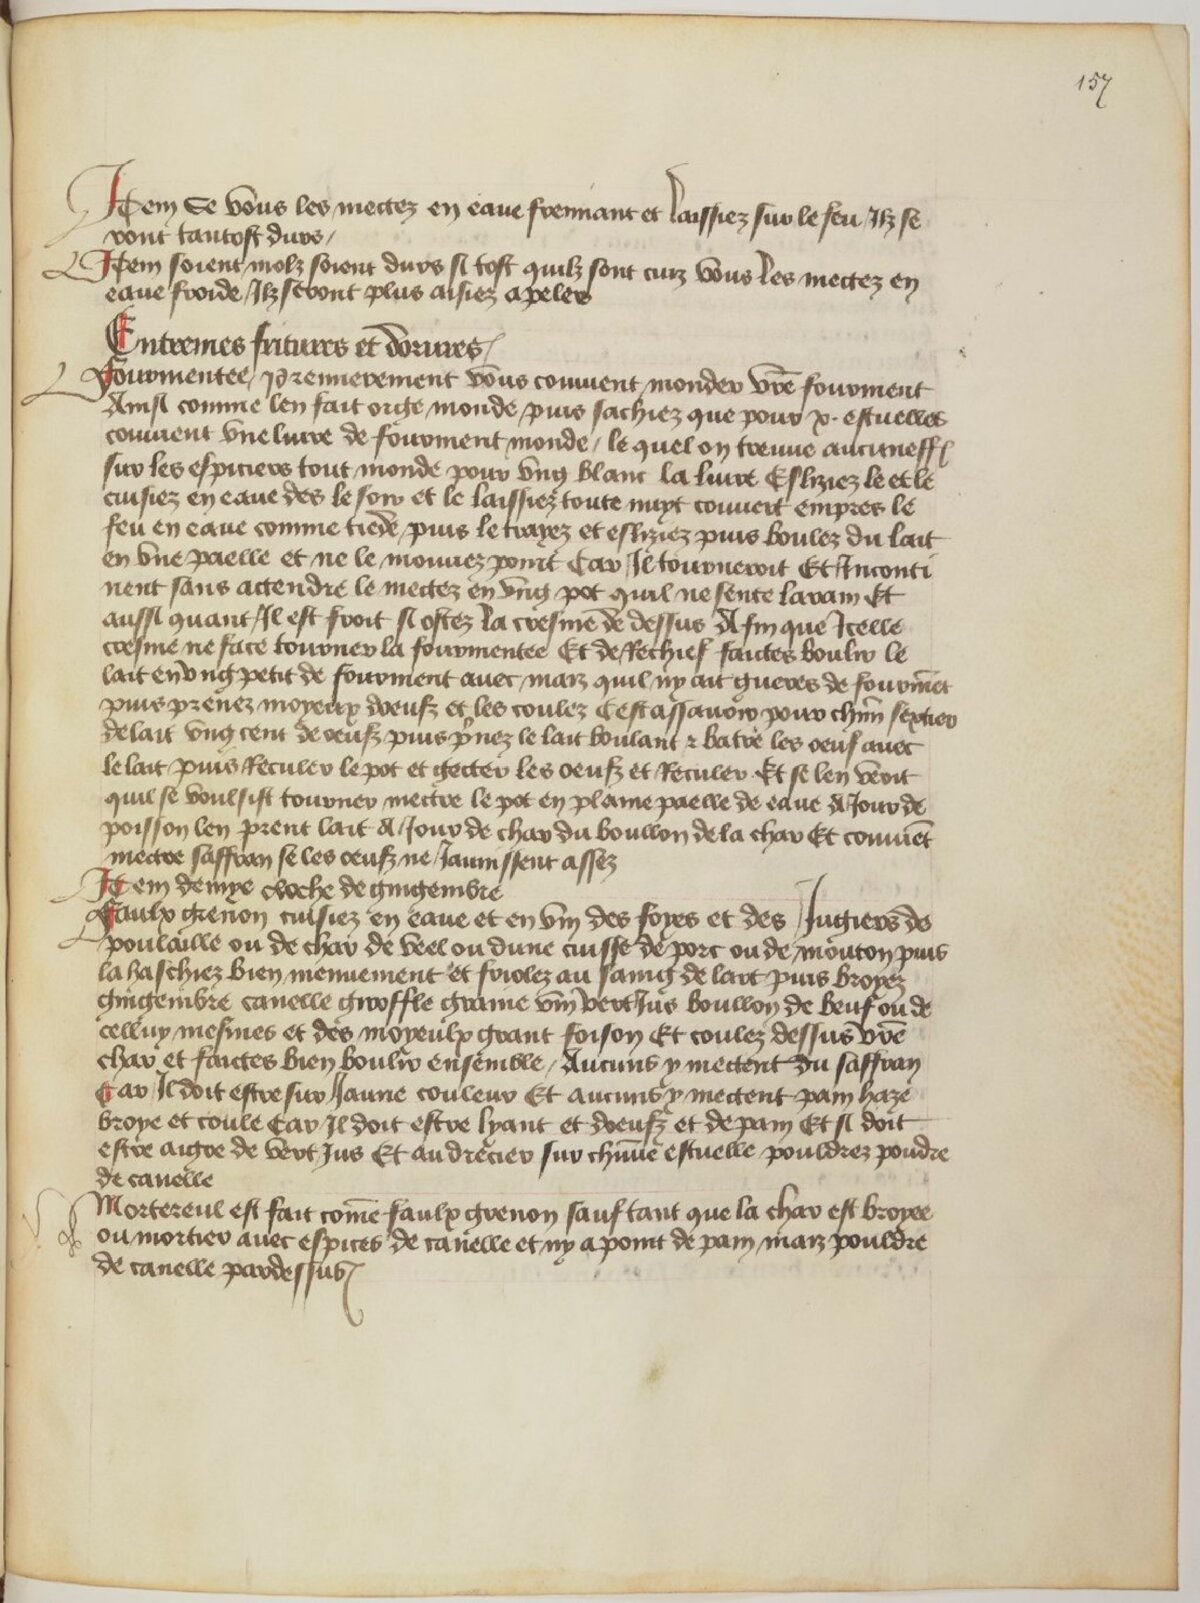 157
Item Se vous les mectez en eaue fremiant et laissiez sur le feu Ilz se
ront tantost durs /
Item soient molz soient durs si tost quilz sont cuiz vous les mectez en
eaue froide / Ilz seront plus aisiez a peler
Entremes fritures et dorures /
Fourmentee / Premierement vous convient monder vr̄e fourment
Ainsi comme len fait orge monde / puis sachiez que pour x. escuelles
convient une livre de fourment monde / le quel on treuve aucuneff
sur les espiciers tout monde pour ung blanc la livre Esliziez le et le
cuisiez en eaue des le soir et le laissiez toute nuyt couvert empres le
feu en eaue comme tiede puis le trayez et esliziez puis boulez du lait
en une paelle et ne le mouvez point Car Il tourneroit Et Inconti
nent sans actendre le mectez en ung pot quil ne sente larain Et
aussi quant Il est froit si ostez la cresme de dessus Afin que Icelle
cresme ne face tourner la fourmentee Et de Rechief faictes boulir le
lait en ung petit de fourment avec maiz quil ny ait gueres de fourmēt
puis prenez moyeux doeufz et les coulez Cest assavoir pour chūn sextier
de lait ung cent de oeufz puis p̄nez le lait boulant ⁊ batre les oeuf avec
le lait puis Reculer le pot et gecter les oeufz et Reculer Et se len veoit
quil se voulsist tourner mectre le pot en plaine paelle de eaue A Jour de
poisson len prent lait A Jour de char du boullon de la char Et conviēt
mectre saffran se les oeufz ne Jaunissent assez
Item demye cloche de gingembre
Faulx grenon cuisiez en eaue et en vin des foyes et des Jugiers de
poulaille ou de char de veel ou dune cuisse de porc ou de mouton puis
la haschiez bien menuement et friolez au saing de lart puis broyez
gingembre canelle giroffle graine vin vertJus boullon de beuf ou de
celluy mesmes et des moyeulx grant foison Et coulez dessus vr̄e
char et faictes bien boulir ensemble / Aucuns y mectent du saffran
Car Il doit estre sur Jaune couleur Et aucuns y mectent pain haze
broye et coule Car Il doit estre lyant et doeufz et de pain Et si doit
estre aigre de vert Jus Et au drecier sur chūne escuelle pouldrez poudre
de canelle
Mortereul est fait com̄e faulx grenon sauf tant que la char est broyee
ou mortier avec espices de canelle et ny a point de pain maiz pouldre
de canelle pardessus